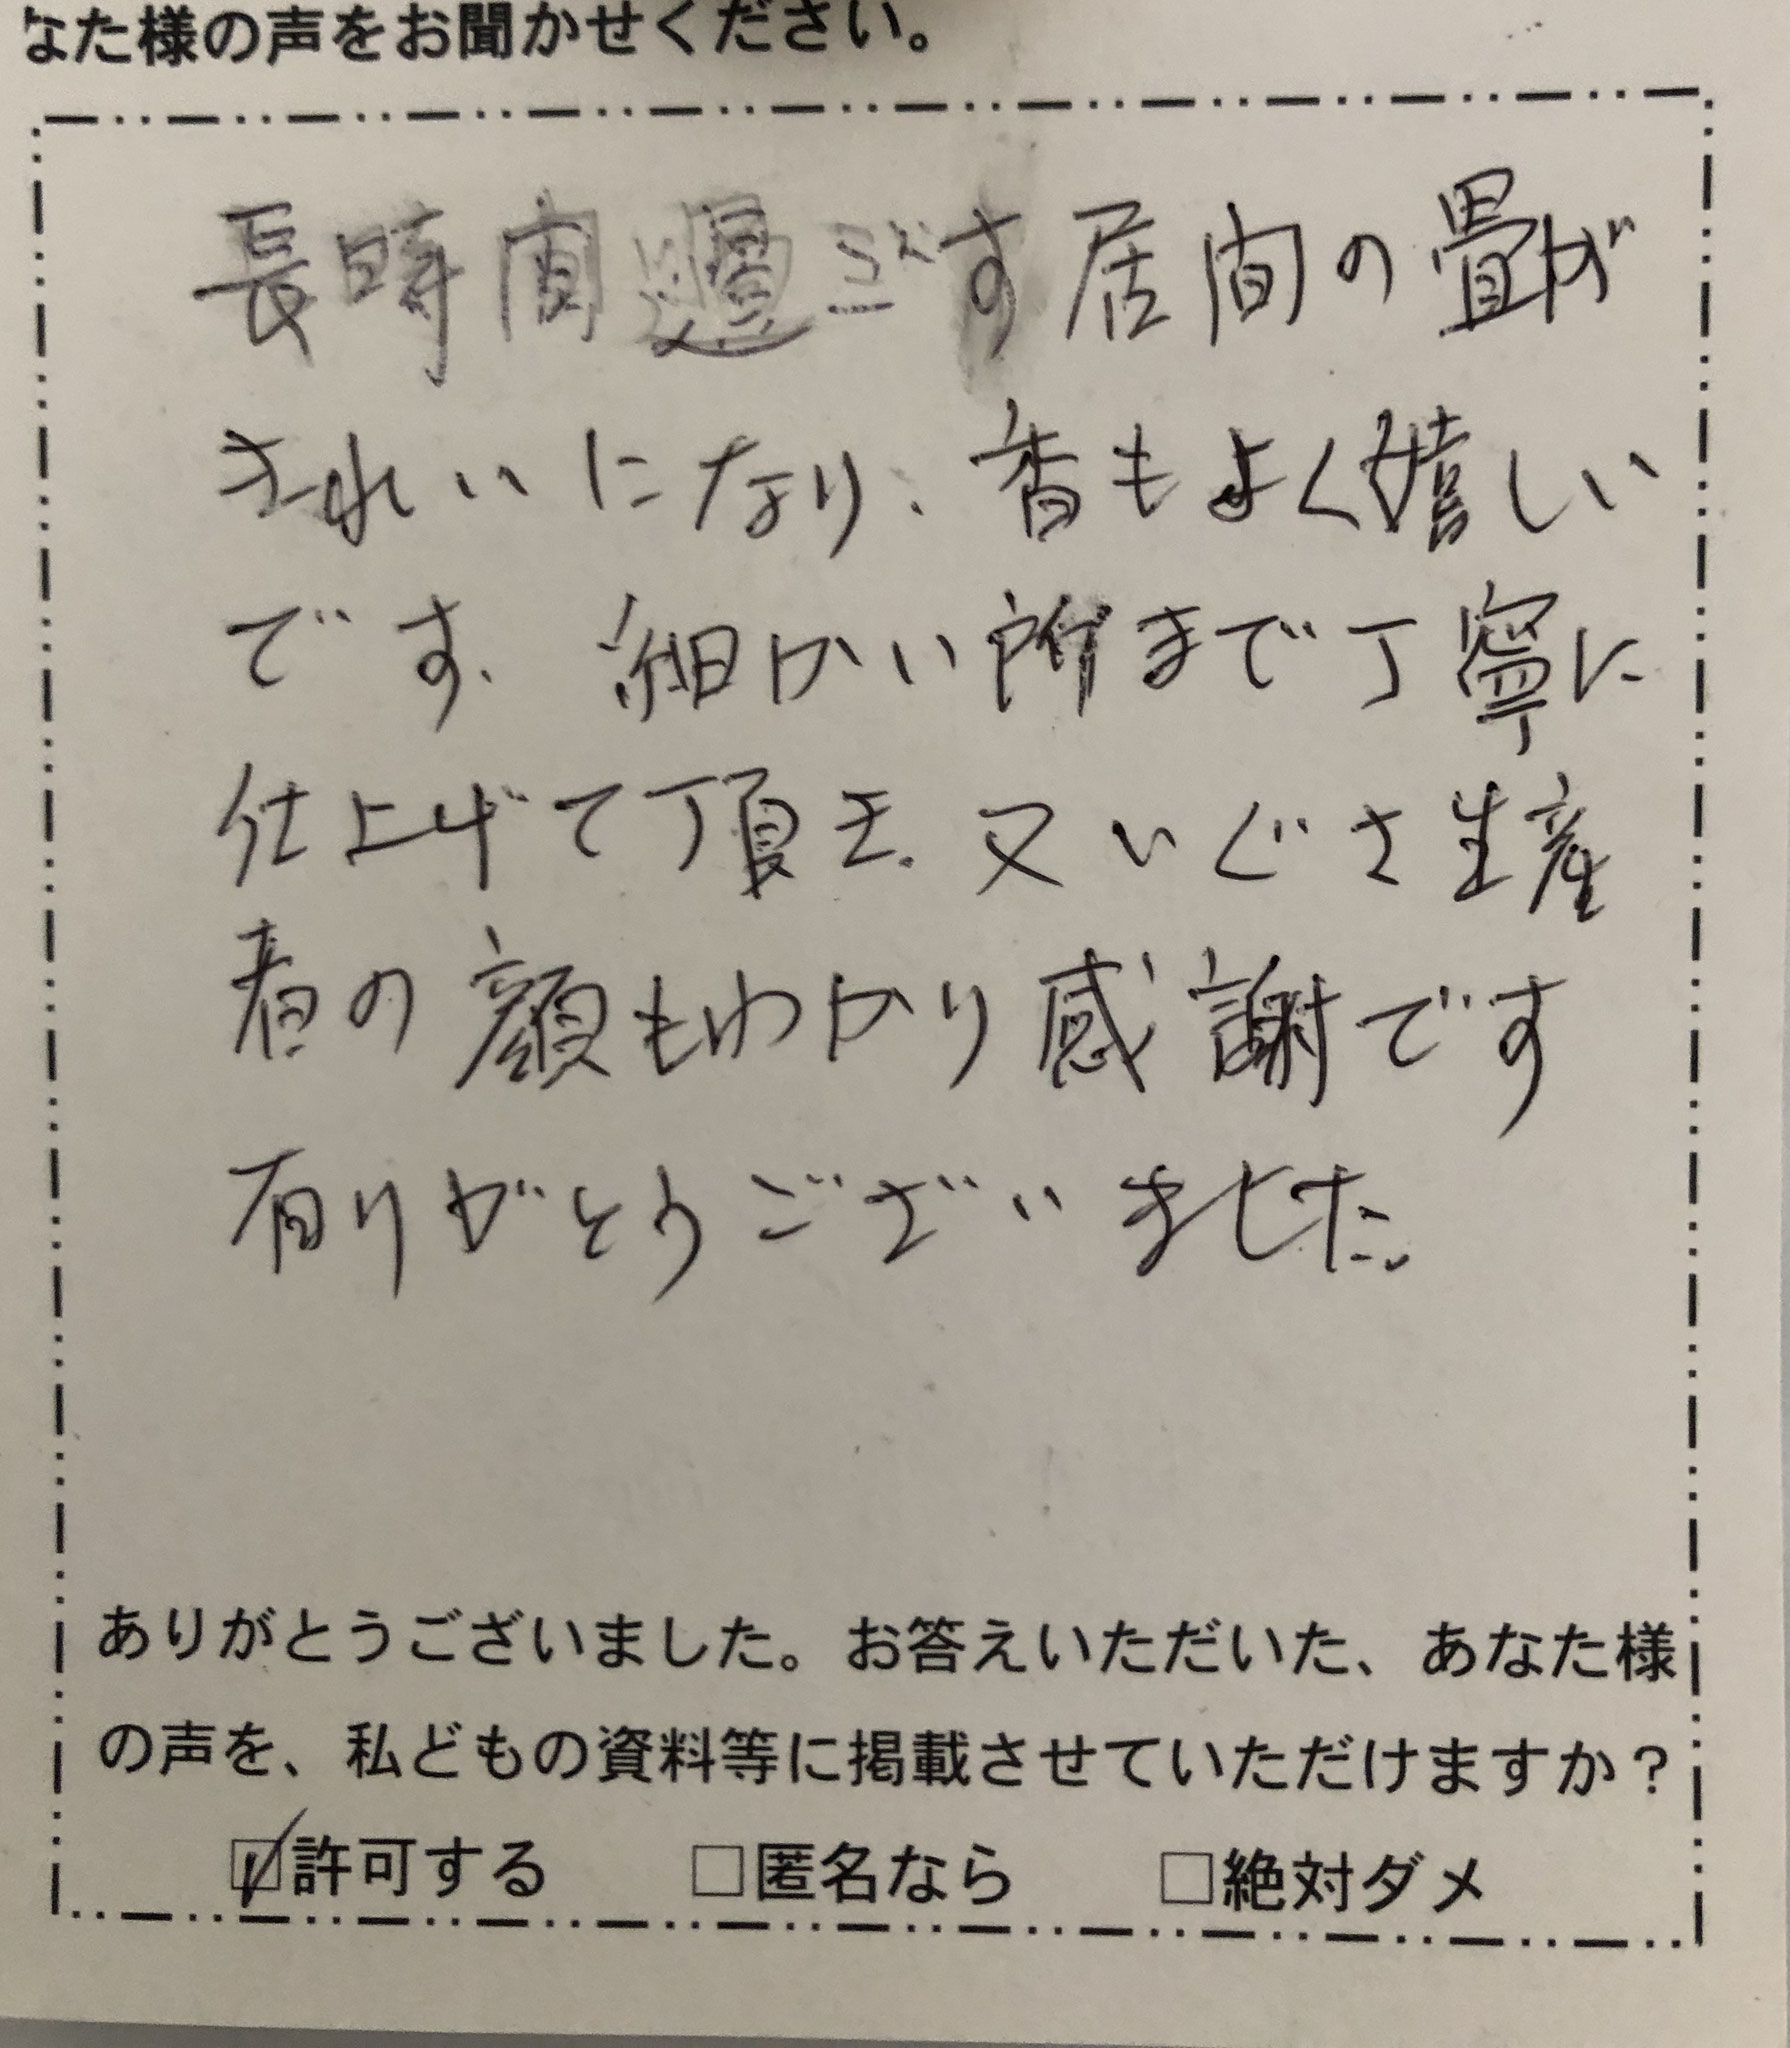 なた様の声をお聞かせください。
長時間過ごす居間の畳が
きれいになり、香もよく嬉しい
です。細かい所まで丁寧に
仕上げて頂き、又いぐさ生産
者の顔もわかり感謝です
有りがとうございました。
ありがとうございました。お答えいただいた、あなた様
の声を、私どもの資料等に掲載させていただけますか？
☑許可する □匿名なら □絶対ダメ